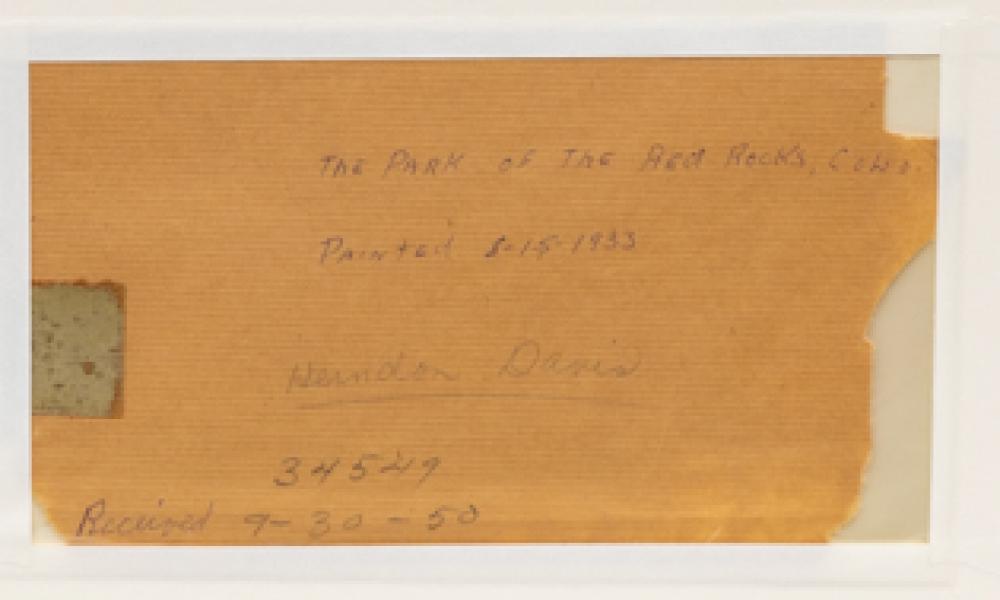 The Park of The Red Rocks, Colo.
Painted 8-15-1933
Herndon Davis
34549
Received 9-30-50